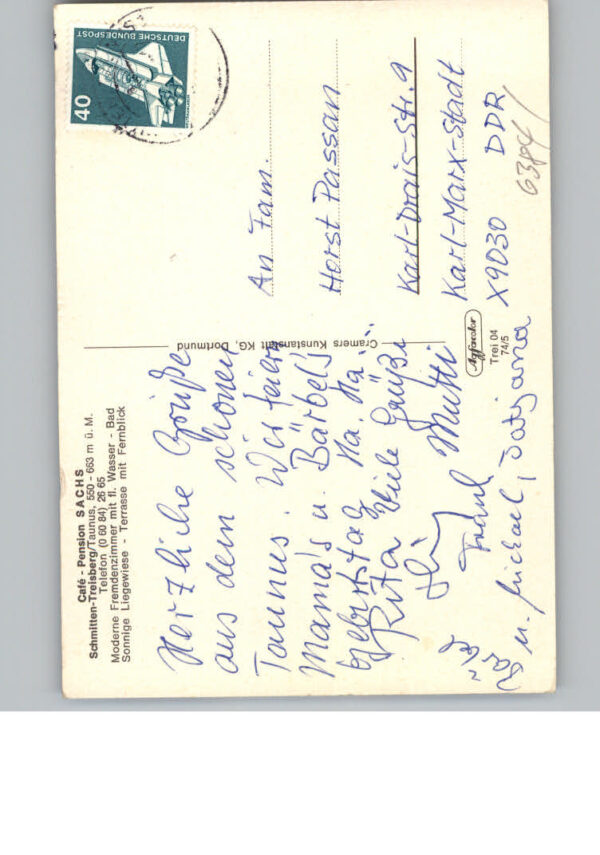 Café - Pension SACHS
Schmitten-Treisberg/Taunus, 550 - 663 m ü. M.
Telefon (0 60 84) 26 65
Moderne Fremdenzimmer mit fl. Wasser - Bad
Sonnige Liegewiese - Terrasse mit Fernblick
Herzliche Grüße
aus dem schönen
Taunus. Wir feiern
Mama's u. Bärbel's
Geburtstag Ha. Ha...
Rita Viele Grüße
Mutti
u. Michael, Tatjana
Cramers Kunstanstalt KG, Dortmund
Agfacolor
Trei 04
74/5
40
DEUTSCHE BUNDESPOST
An Fam.
Horst Passan
Karl-Drais-Str. 9
Karl-Marx-Stadt
X9030 DDR